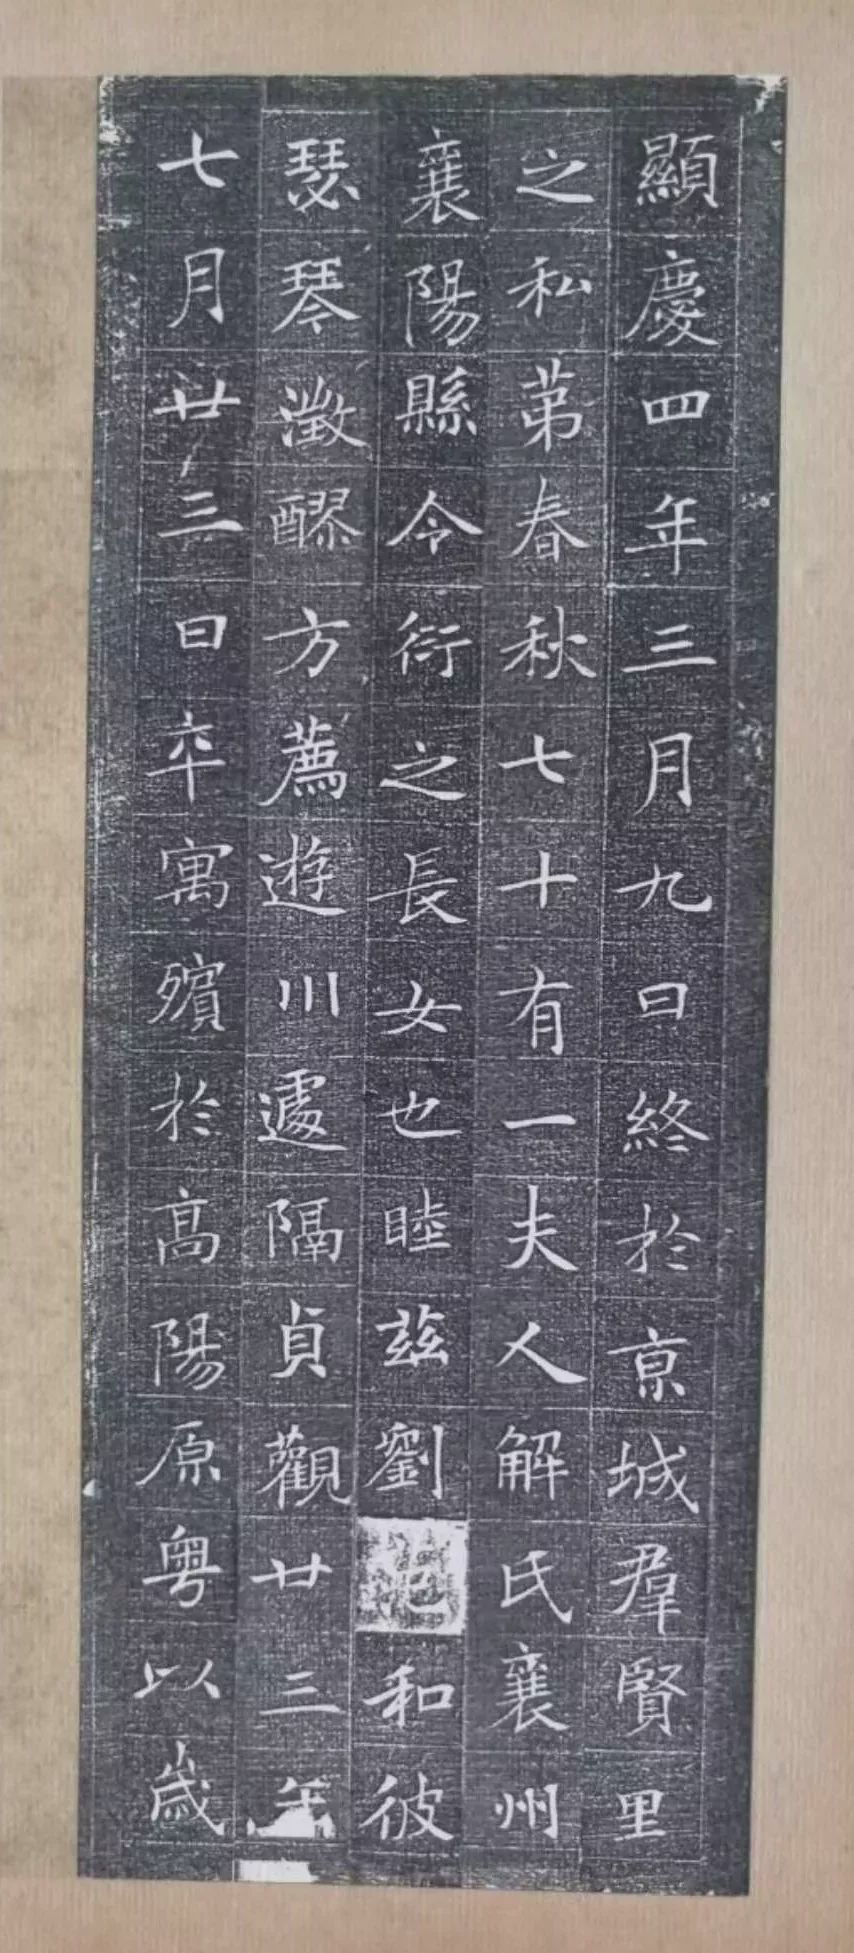 顯慶四年三月九日終於京城羣賢里
之私苐春秋七十有一夫人解氏襄州
襄陽縣令衍之長女也睦茲劉和彼
瑟琴澂醪方薦遊川遽隔貞觀廿三年
七月廿三日卒寓殯於高陽原粵以歲